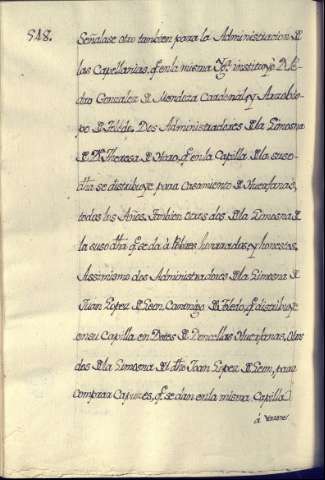 548. Señalase otro tambien para la Administracion de
las Capellanias, q̃ en la misma Ygª instituyó D. Pe
dro Gonzalez de Mendoza Cardenal, y Arzobis-
po de Toledo. Dos Administradores de la Limosna
de Dª Theresa de Haro, q̃ en la Capilla de la suso
dha se distribuye, para Casamiento de Huerfanas,
todos los Años. Tambien otros dos de la Limosna de
la susodha q̃ se da à Pobres honrados, y honestos,
Assimismo dos Administradores de la Limosna de
Juan Lopez de Leon, Canonigo de Toledo, q̃ distribuye
en su Capilla en Dotes de Doncellas Huerfanas. Otros
dos de la Limosna del dho Joan Lopez de Leon, para
comprar Capuzes, q̃ se dan en la misma Capilla
à